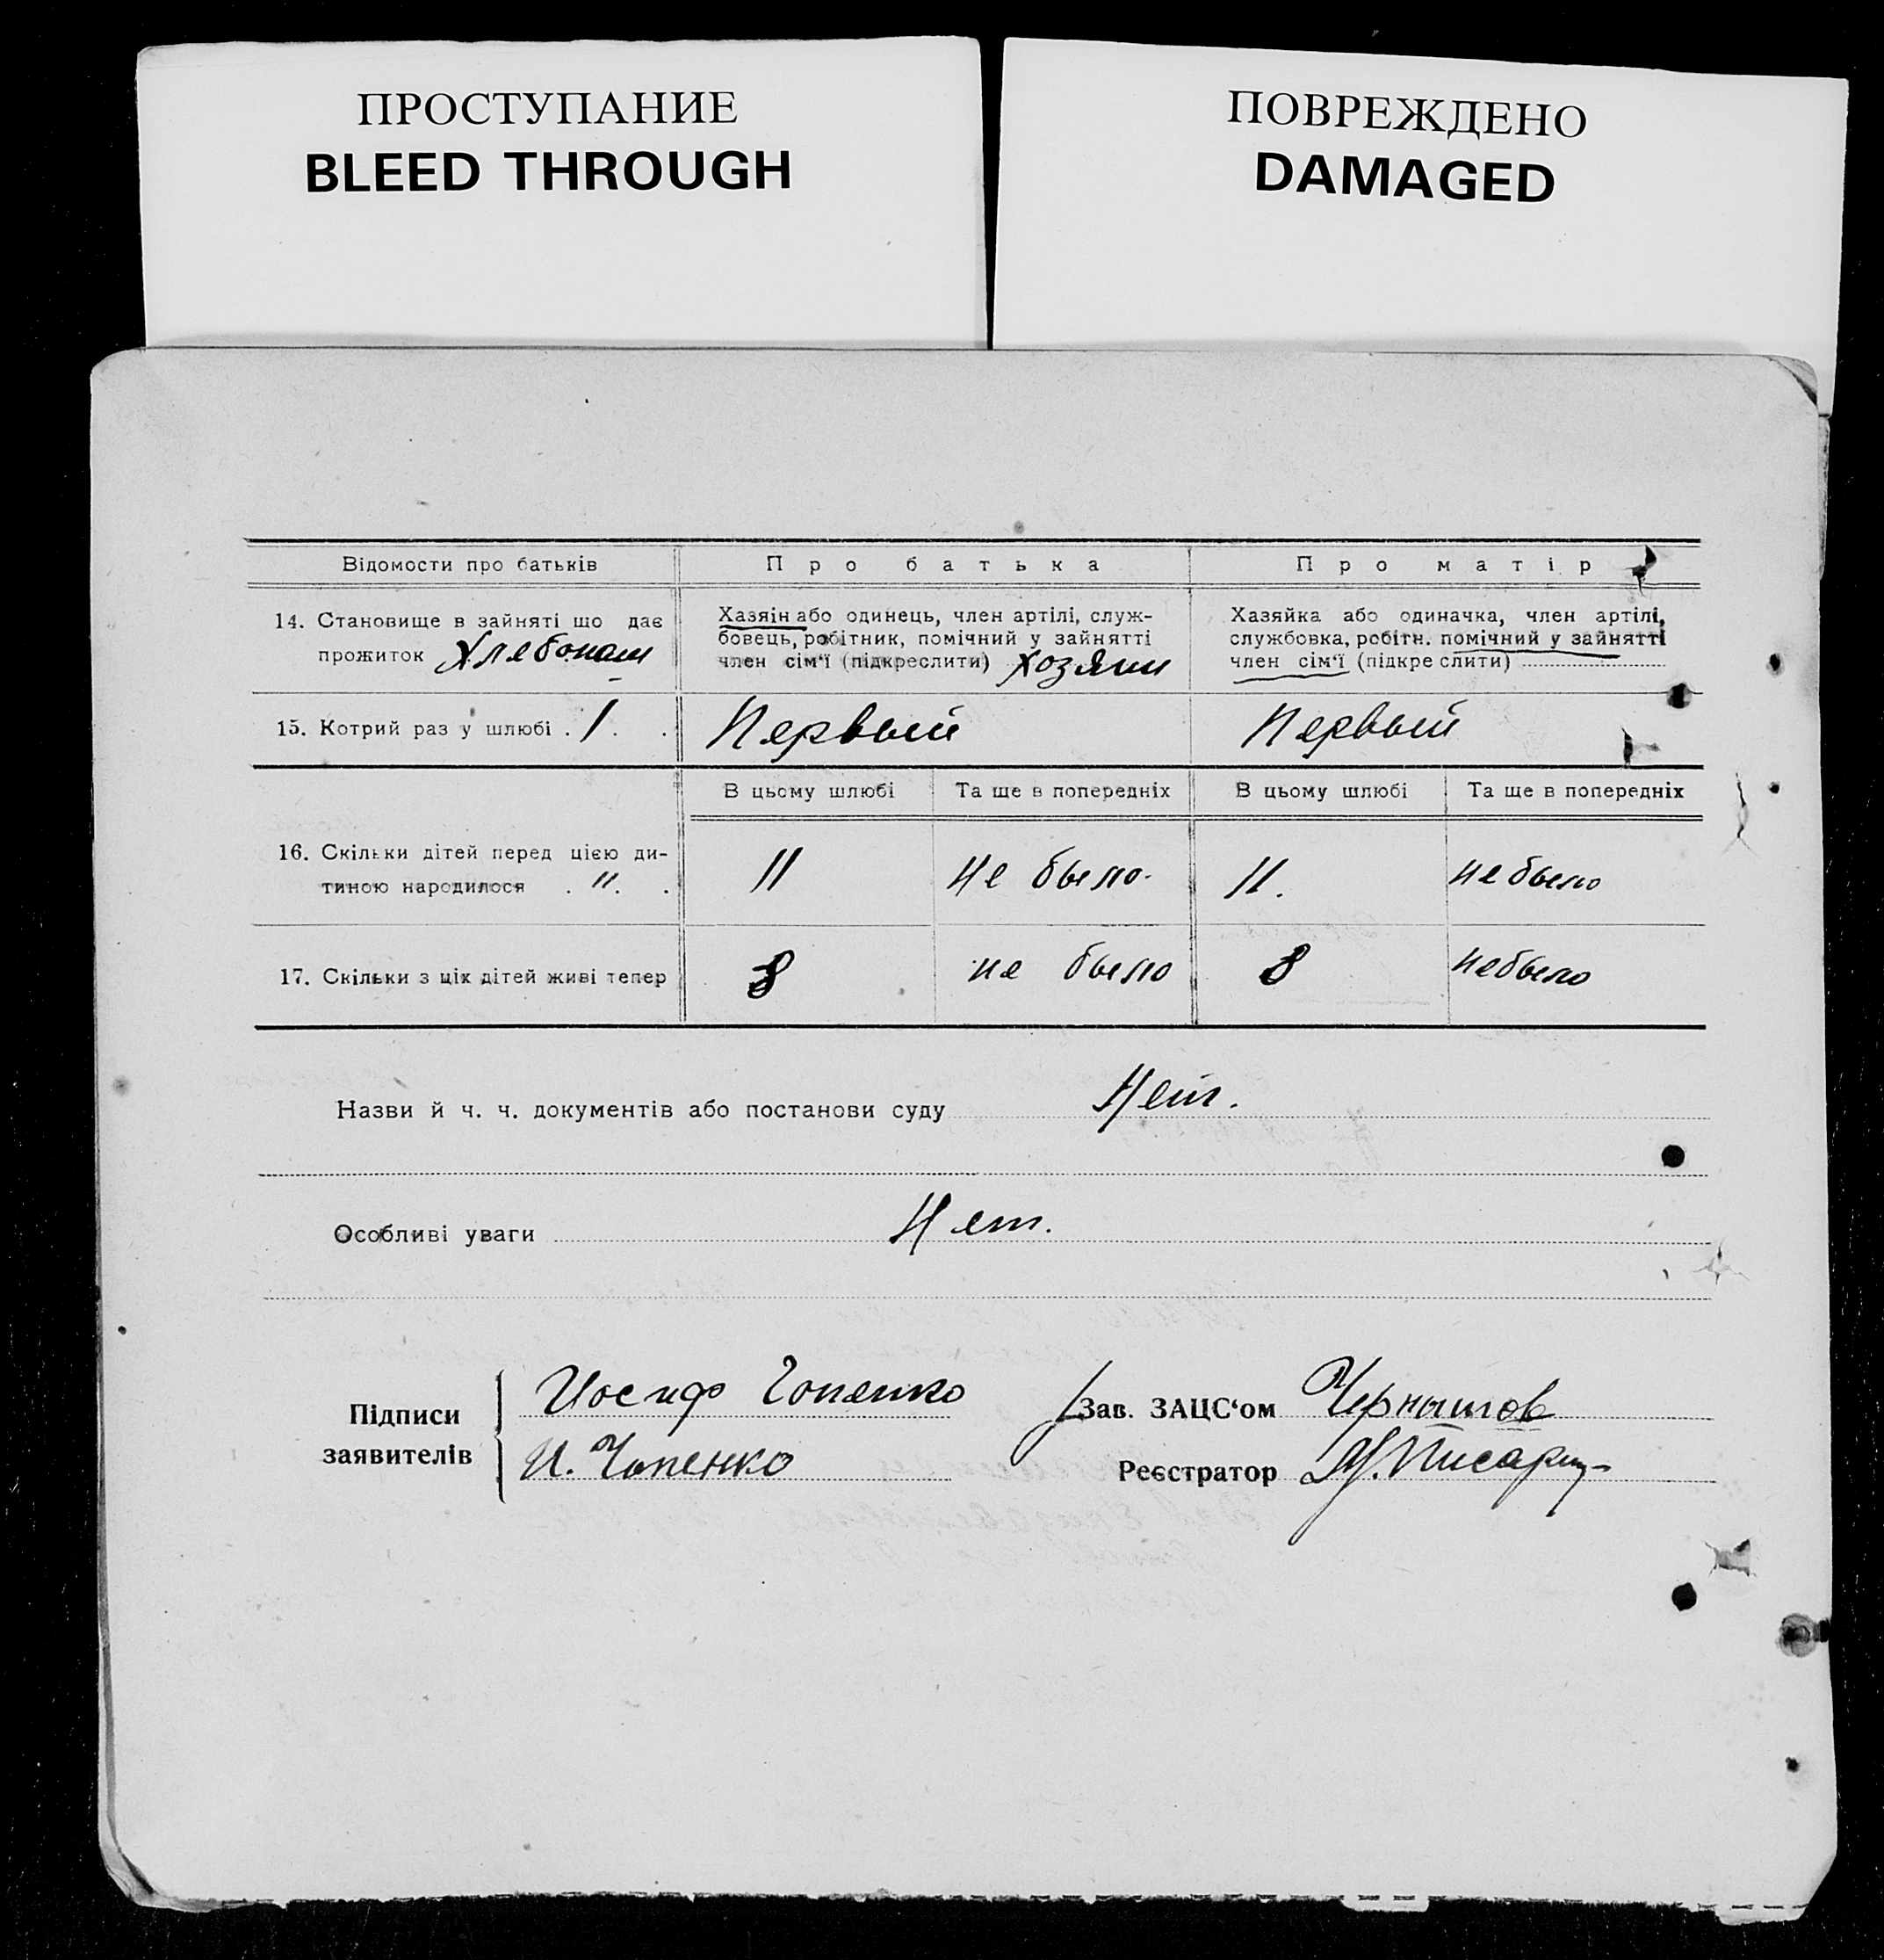 ПРОСТУПАНИЕ
BLEED THROUGH
ПОВРЕЖДЕНО
DAMAGED
Відомости про батьків
Про батька
Про матір
14. Становище в зайняті що дає
прожиток Хлебопаш
Хазяїн або одинець, член артілі, служ-
бовець, робітник, помічний у зайнятті
член сім‘ї (підкреслити) хозяин
Хазяйка або одиначка, член артілі,
службовка, робітн. помічний у зайнятті
член сім‘ї (підкреслити)
15. Котрий раз у шлюбі . 1 . .
Первый
Первый
В цьому шлюбі
Та ще в попередніх
В цьому шлюбі
Та ще в попередніх
16. Скільки дітей перед цією ди-
тиною народилося . 11. .
11
не было.
11.
не было
17. Скільки з ціх дітей живі тепер
8
не было
8
не было
Назви й ч. ч. документів або постанови суду Нет.
Особливі уваги Нет.
Підписи
заявителів
Иосиф Чопенко
И. Чопенко
Зав. ЗАЦС‘ом Чернышов
Реєстратор